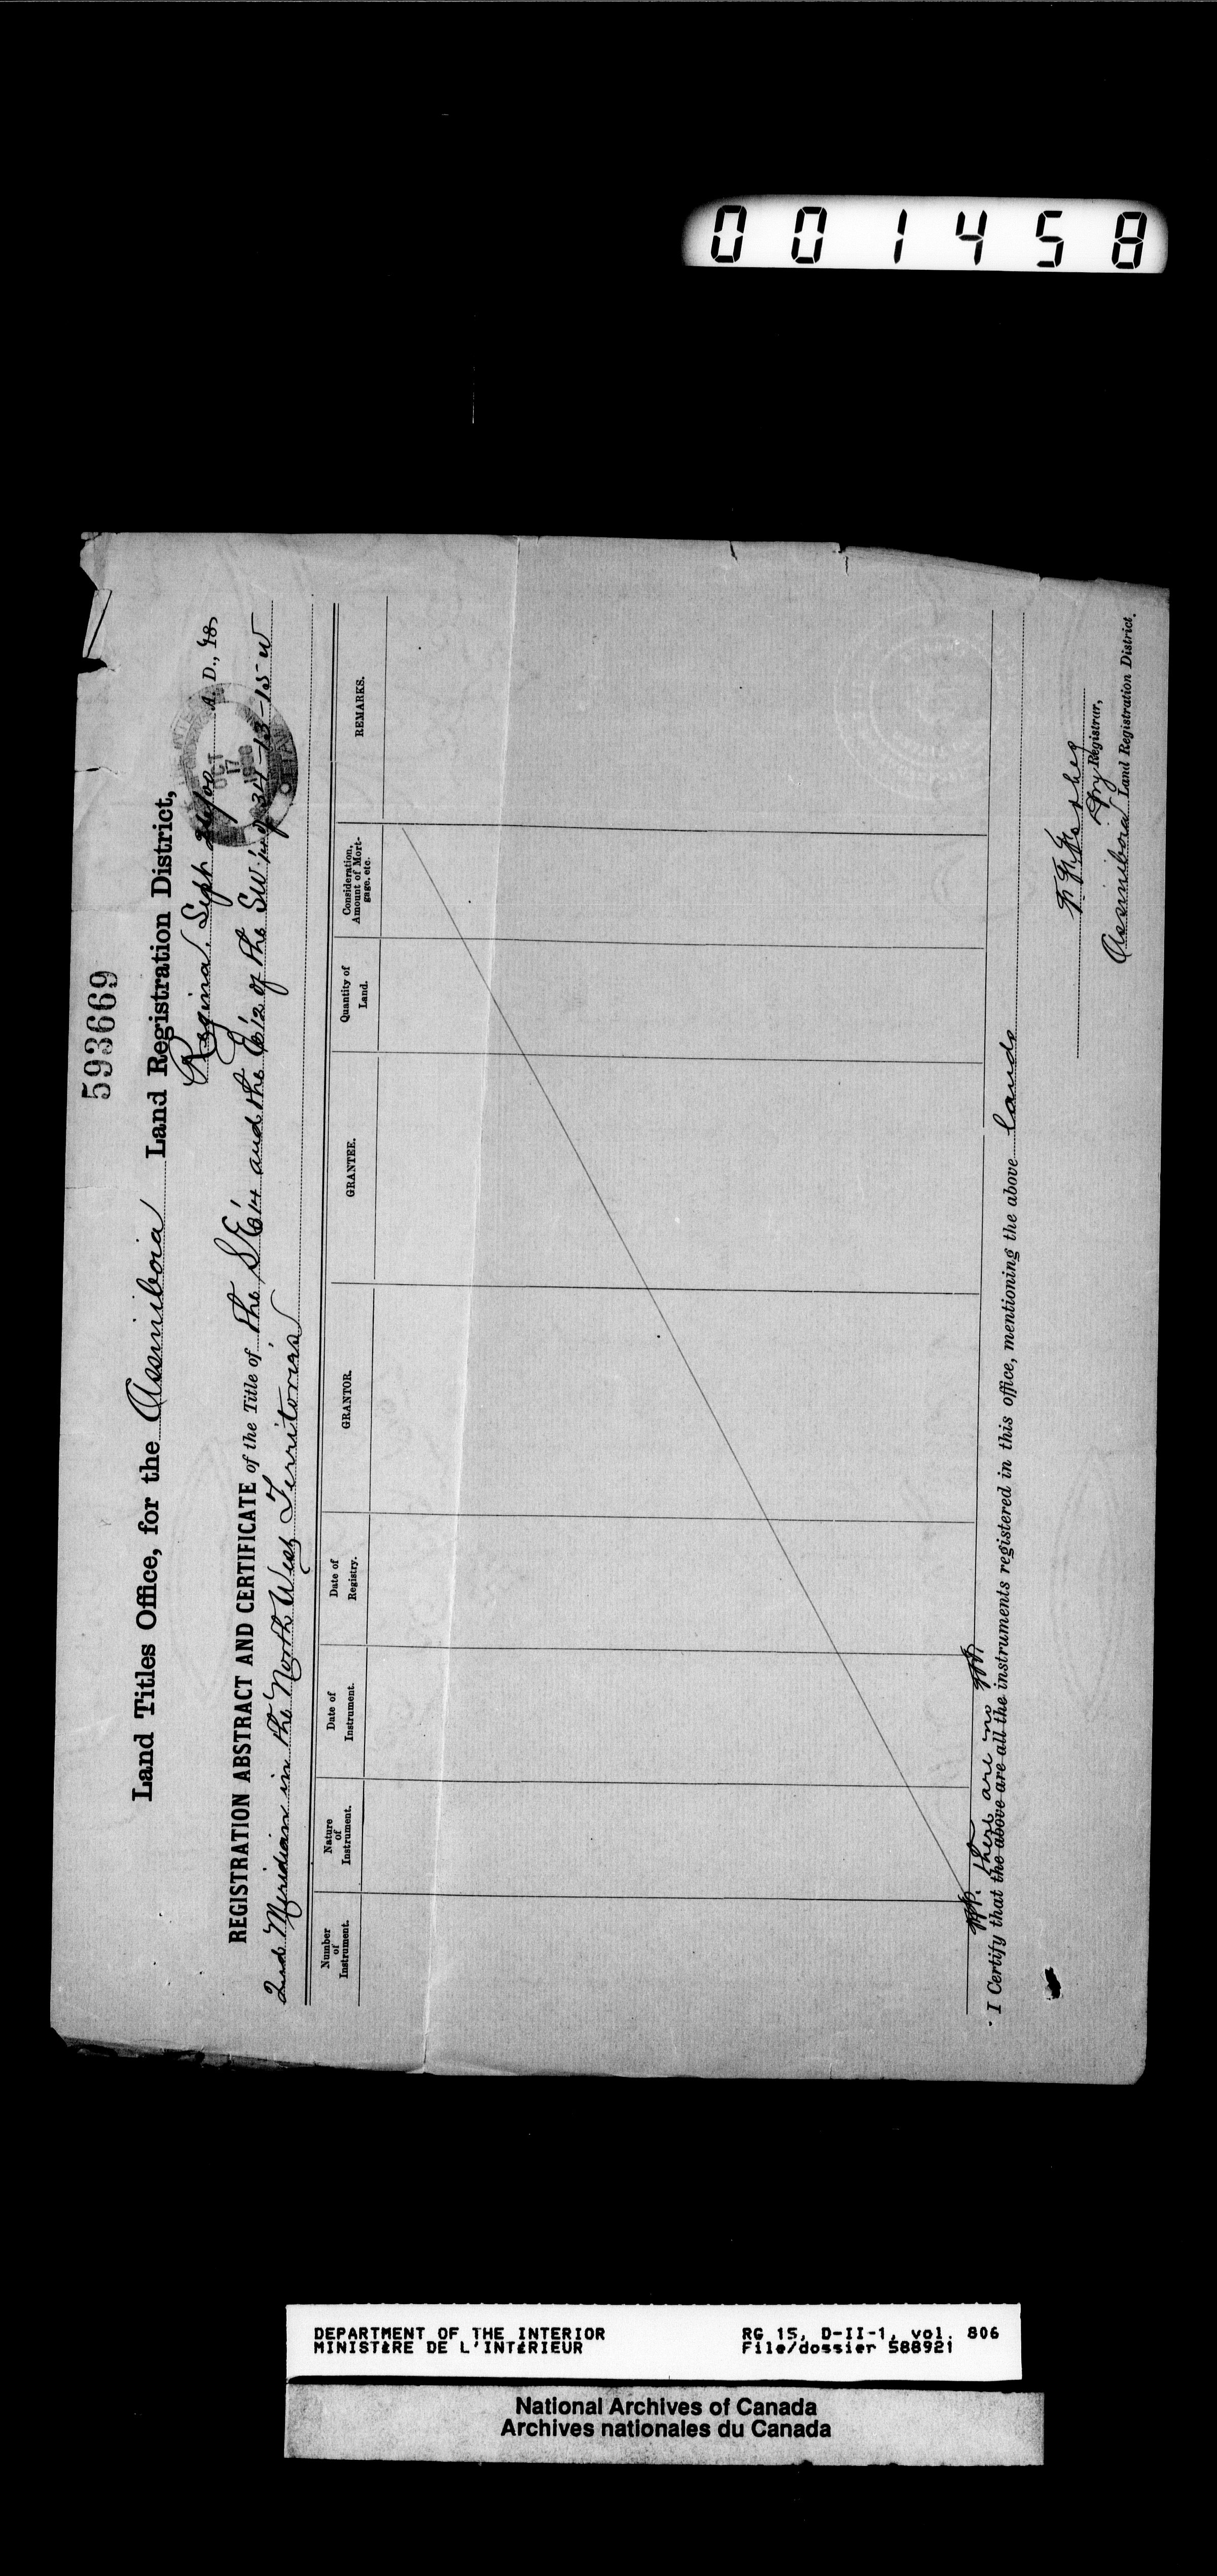 001458
593669
Land Titles Office, for the Assiniboia Land Registration District,
Regina, Sept 26/00 A. D., 18
OCT
17
REGISTRATION ABSTRACT AND CERTIFICATE of the Title of the SE 1/4 and the E 1/2 of the SW 1/4 of 34-13-15 W
2nd Meridian in the North West Territories
Number of Instrument. Nature of Instrument. Date of Instrument. Date of Registry. GRANTOR. GRANTEE. Quantity of Land. Consideration, Amount of Mortgage, etc. REMARKS.
there are no
I Certify that the above are all the instruments registered in this office, mentioning the above lands
Dpy Registrar,
Assiniboia Land Registration District.
DEPARTMENT OF THE INTERIOR RG 15, D-II-1, vol. 806
MINISTÈRE DE L'INTÉRIEUR File/dossier 588921
National Archives of Canada
Archives nationales du Canada